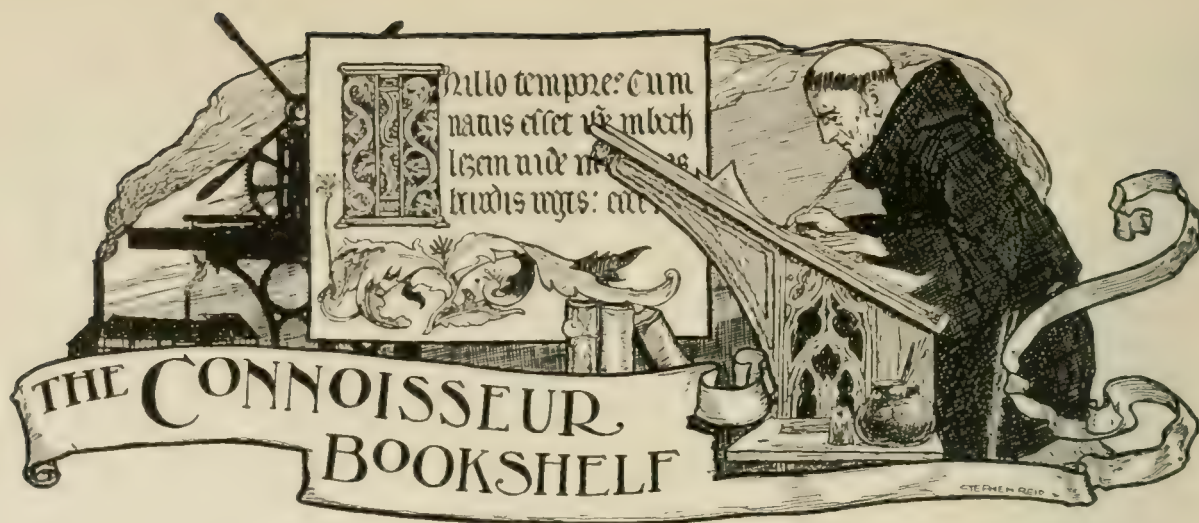 INillo tempore: Cum
natus esset inbeth
lezem iude
regis:
THE CONNOISSEUR
BOOKSHELF
STEPHEN REID